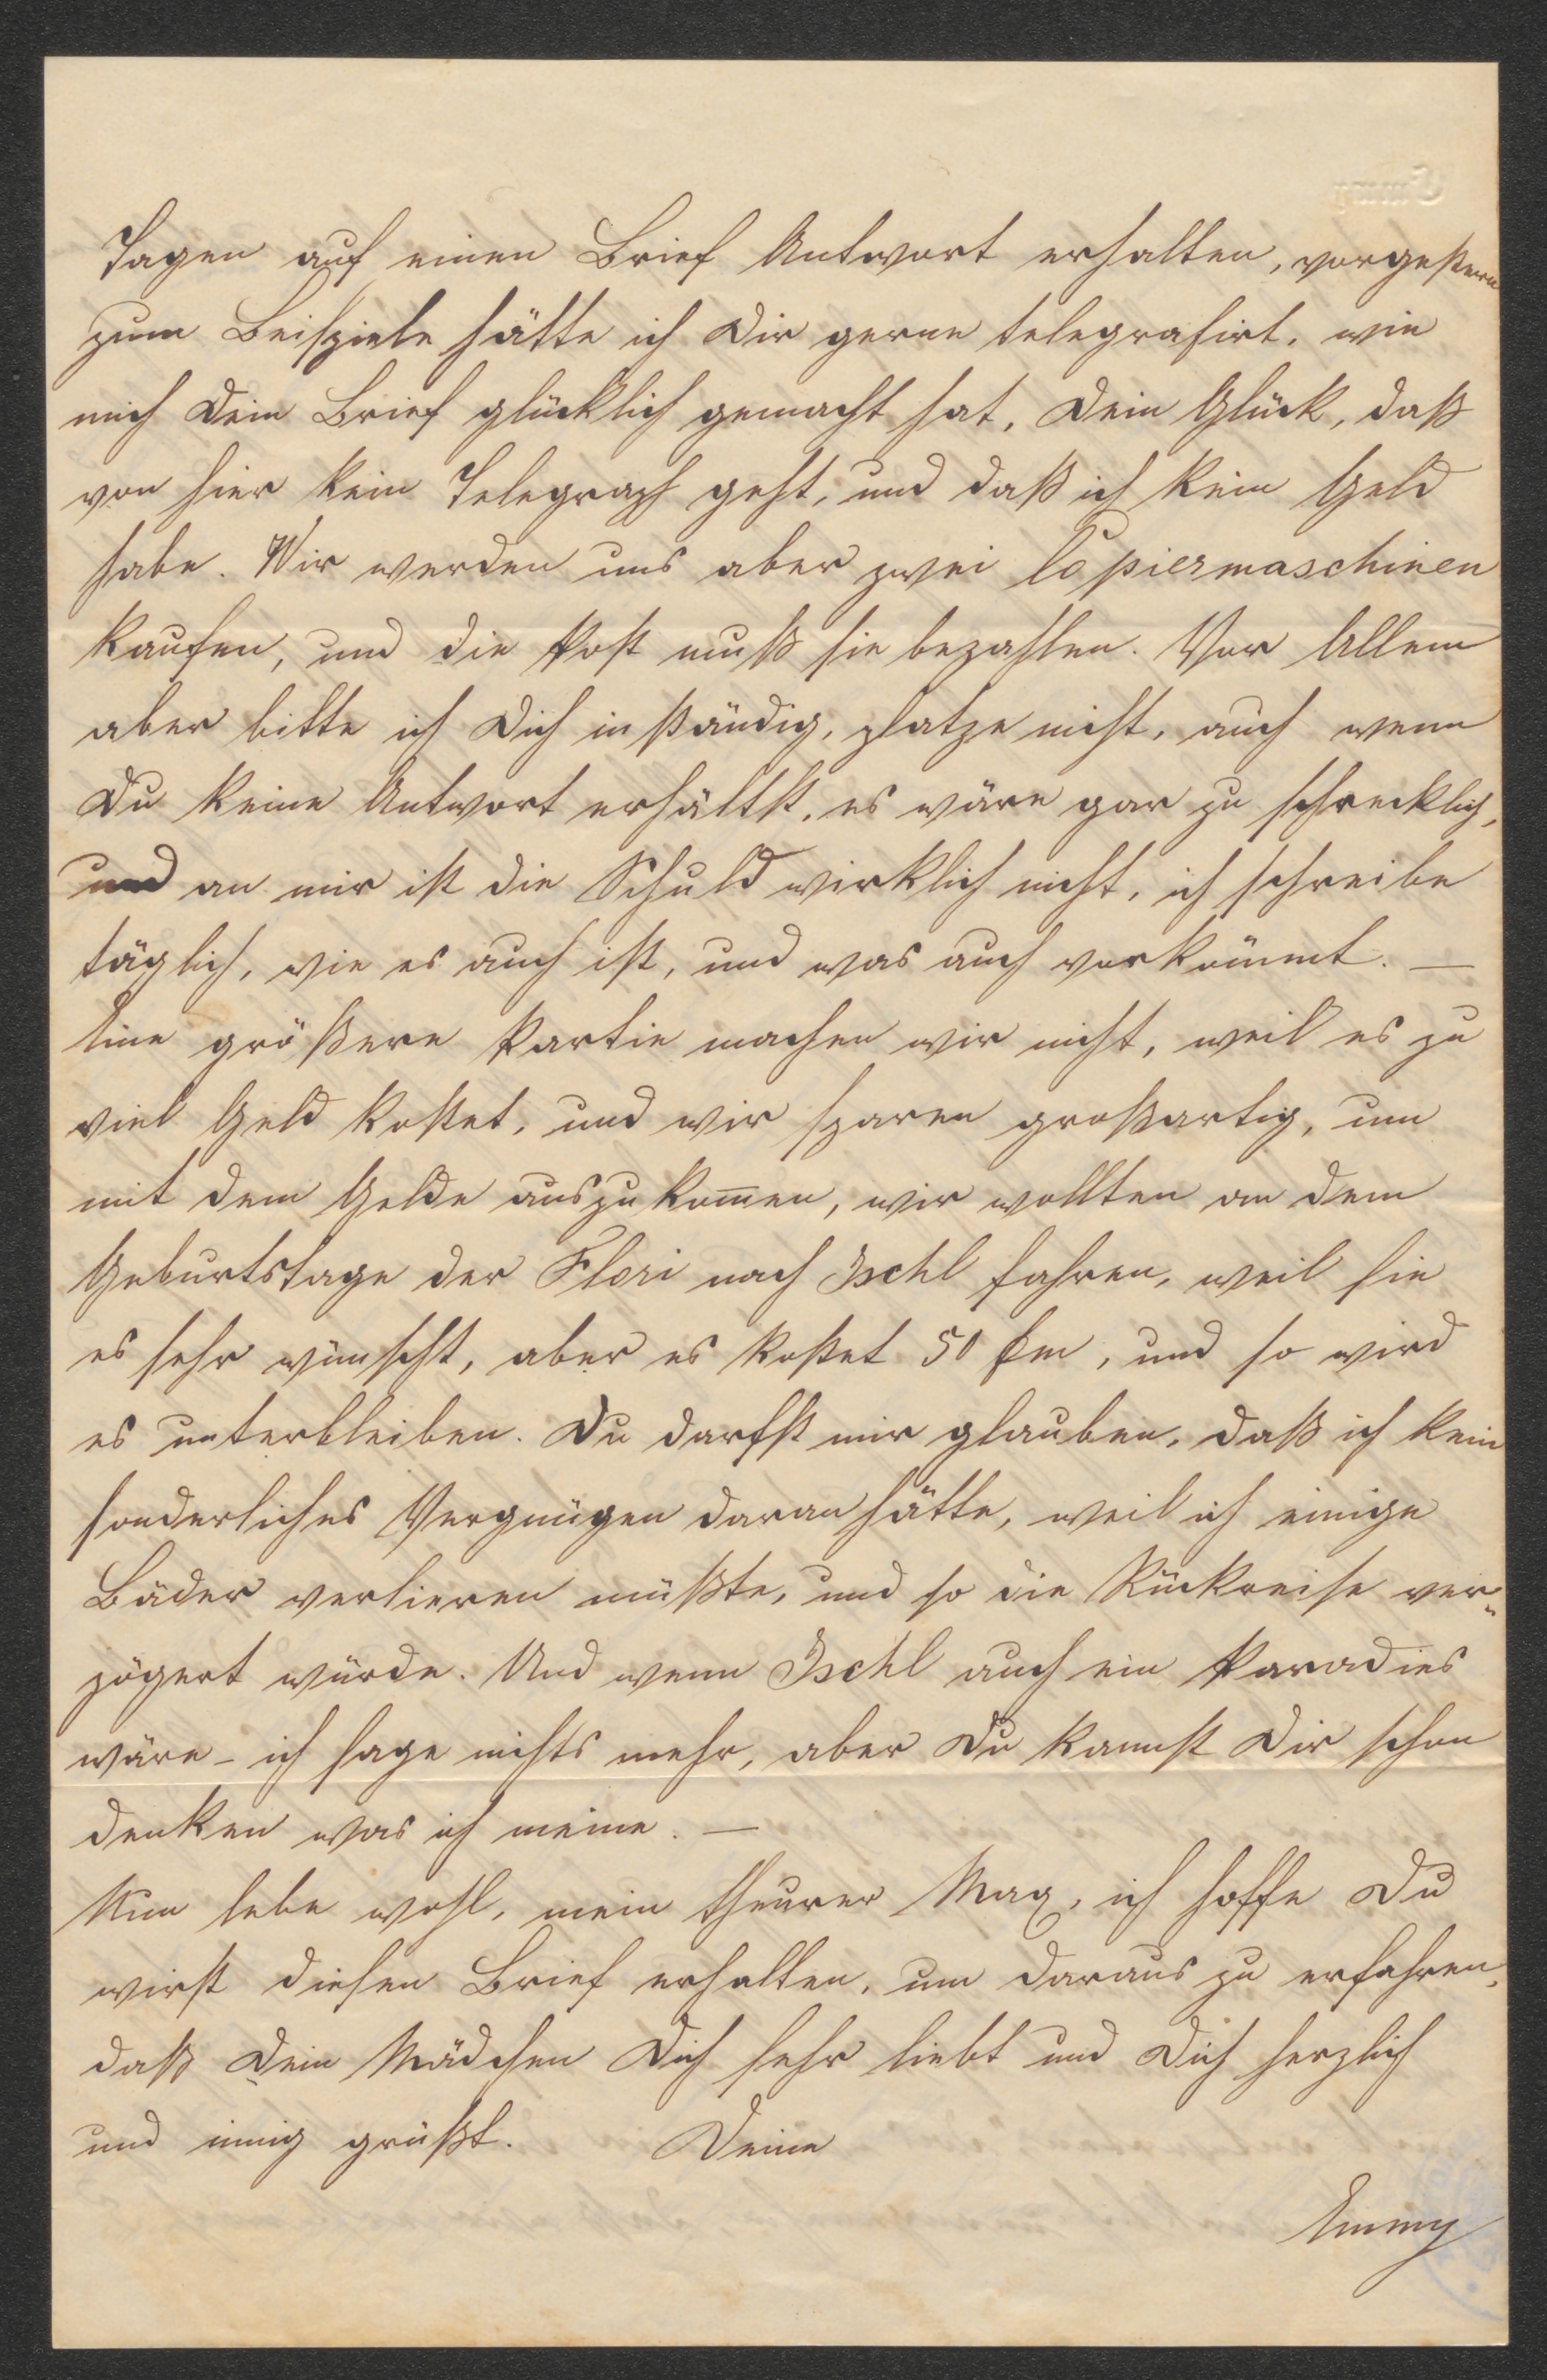 Tagen auf einen Brief Antwort erhalten, vorgestern
zum Beispiele hätte ich Dir gerne telegrafirt, wie
mich Dein Brief glücklich gemacht hat, Dein Glück, daß
von hier kein Telegraph geht, und daß ich kein Geld
habe. Wir werden uns aber zwei Copiermaschinen
kaufen, und die Post muß sie bezahlen. Vor Allem
aber bitte ich Dich inständig, platze nicht, auch wenn
Du keine Antwort erhältst, es wäre gar zu schrecklich,
und an mir ist die Schuld wirklich nicht, ich schreibe
täglich, wie es auch ist, und was auch vorkömmt. —
Eine größere Partie machen wir nicht, weil es zu
viel Geld kostet, und wir sparen großartig, um
mit dem Gelde auszukom̅en, wir wollten an dem
Geburtstage der Flori nach Ischl fahren, weil sie
es sehr wünscht, aber es kostet 50 , und so wird
es unterbleiben. Du darfst mir glauben, daß ich kein
sonderliches Vergnügen daran hätte, weil ich einige
Bäder verlieren müßte, und so die Rückreise ver-
zögert würde. Und wenn Ischl auch ein Paradies
wäre – ich sage nichts mehr, aber Du kannst Dir schon
denken was ich meine. —
Nun lebe wohl, mein theurer Max, ich hoffe Du
wirst diesen Brief erhalten, um daraus zu erfahren,
daß Dein Mädchen Dich sehr liebt und Dich herzlich
und innig grüßt. Deine
Emmy